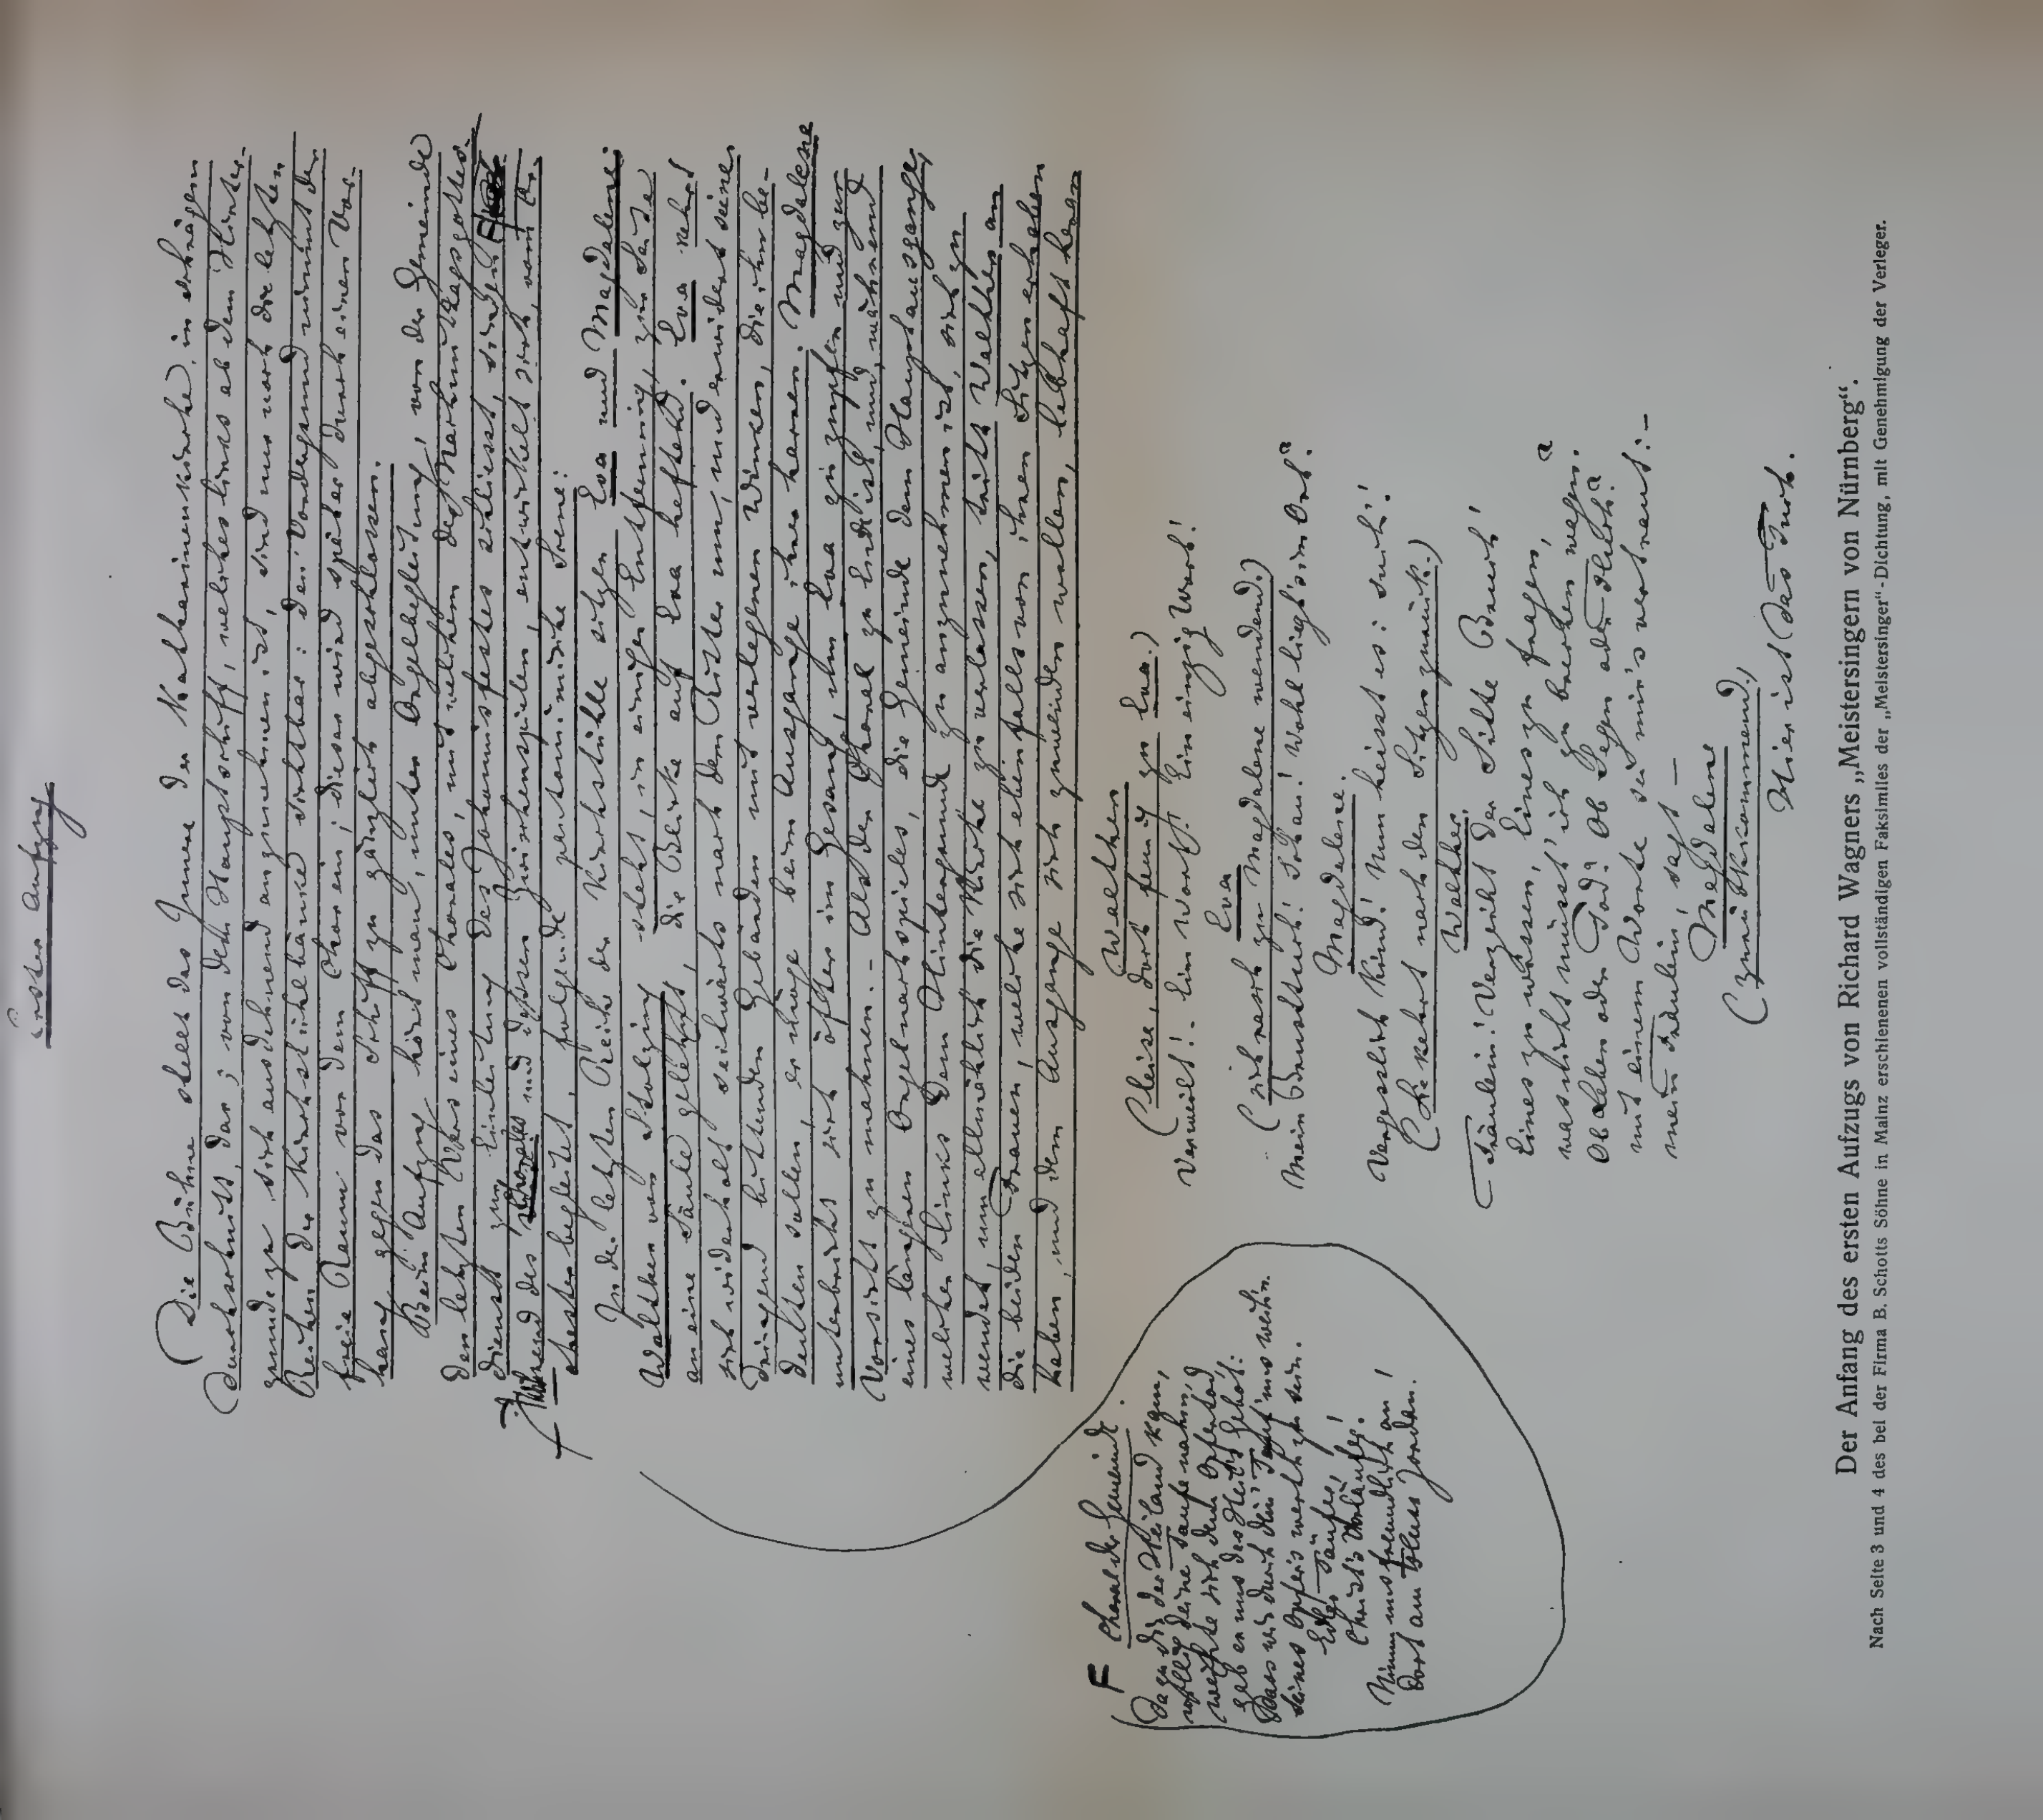 Erster Aufzug
Die Bühne stellt das Innere der Katharinenkirche, in schrägem
Durchschnitt, dar; von dem Hauptschiff, welches links ab dem Hinter-
grunde zu sich ausdehnend anzunehmen ist, sind nur noch die letzten
Reihen der Kirchstuhlbänke sichtbar: den Vordergrund nimmt der
freie Raum vor dem Chor ein; dieser wird später durch einen Vor-
hang gegen das Schiff zu gänzlich abgeschlossen.
Beim Aufzug hört man, unter Orgelbegleitung, von der Gemeinde
den letzten Vers eines Chorales, mit welchem der Nachmittagsgottes-
dienst zur Einleitung des Johannisfestes schliesst, singen. F
Während des Chorales und dessen Zwischenspielen, entwickelt sich, vom Or-
chester begleitet, folgende pantomimische Scene:
In der letzten Reihe der Kirchstühle sitzen Eva und Magdalene;
Walther von Stolzing steht, in einiger Entfernung, zur Seite
an eine Säule gelehnt, die Blicke auf Eva heftend. Eva kehrt
sich wiederholt seitwärts nach dem Ritter um, und erwidert seine
dringend bittenden Gebärden mit verlegenen Winken, die ihm be-
deuten sollen, er möge beim Ausgange ihrer harren. Magdalene
unterbricht sich öfter im Gesang, um Eva zu zupfen und zur
Vorsicht zu mahnen. - Als der Choral zu Ende ist, und, während
eines längeren Orgelnachspieles, die Gemeinde dem Hauptausgange,
welcher links dem Hintergrunde zu anzunehmen ist, sich zu
wendet, um allmählich die Kirche zu verlassen, tritt Walther an
die beiden Frauen, welche sich ebenfalls von ihren Sitzen erhoben
haben, und dem Ausgange sich zuwenden wollen, lebhaft heran
F Choral der Gemeinde.
Da zu dir der Heiland kam,
willig deine Taufe nahm,
weihte sich dem Opfertod,
gab er uns des Heil's Gebot:
Dass wir durch dein' Tauf' uns weih'n,
seines Opfers werth zu sein.
Edler Täufer,
Christ's Vorläufer!
Nimm uns freundlich an!
Dort am Fluss Jordan.
Walther
(leise, doch feurig zu Eva.)
Verweilt! - Ein Wort! Ein einzig Wort!
Eva
(sich rasch zu Magdalene wendend.)
Mein Brusttuch! Schau! Wohl liegt's im Ort?
Magdalene.
Vergesslich Kind! Nun heisst es: such'!
(Sie kehrt nach den Sitzen zurück.)
Walther.
Fräulein! Verzeiht der Sitte Bruch!
Eines zu wissen, Eines zu fragen,
was nicht müsst' ich zu brechen wagen?
Ob Leben oder Tod? Ob Segen oder Fluch?
mit einem Worte sei mir's vertraut: -
mein Fräulein, sagt —
Magdalene
(zurückkommend.)
Hier ist das Tuch.
Der Anfang des ersten Aufzugs von Richard Wagners „Meistersingern von Nürnberg“.
Nach Seite 3 und 4 des bei der Firma B. Schotts Söhne in Mainz erschienenen vollständigen Faksimiles der „Meistersinger“-Dichtung, mit Genehmigung der Verleger.